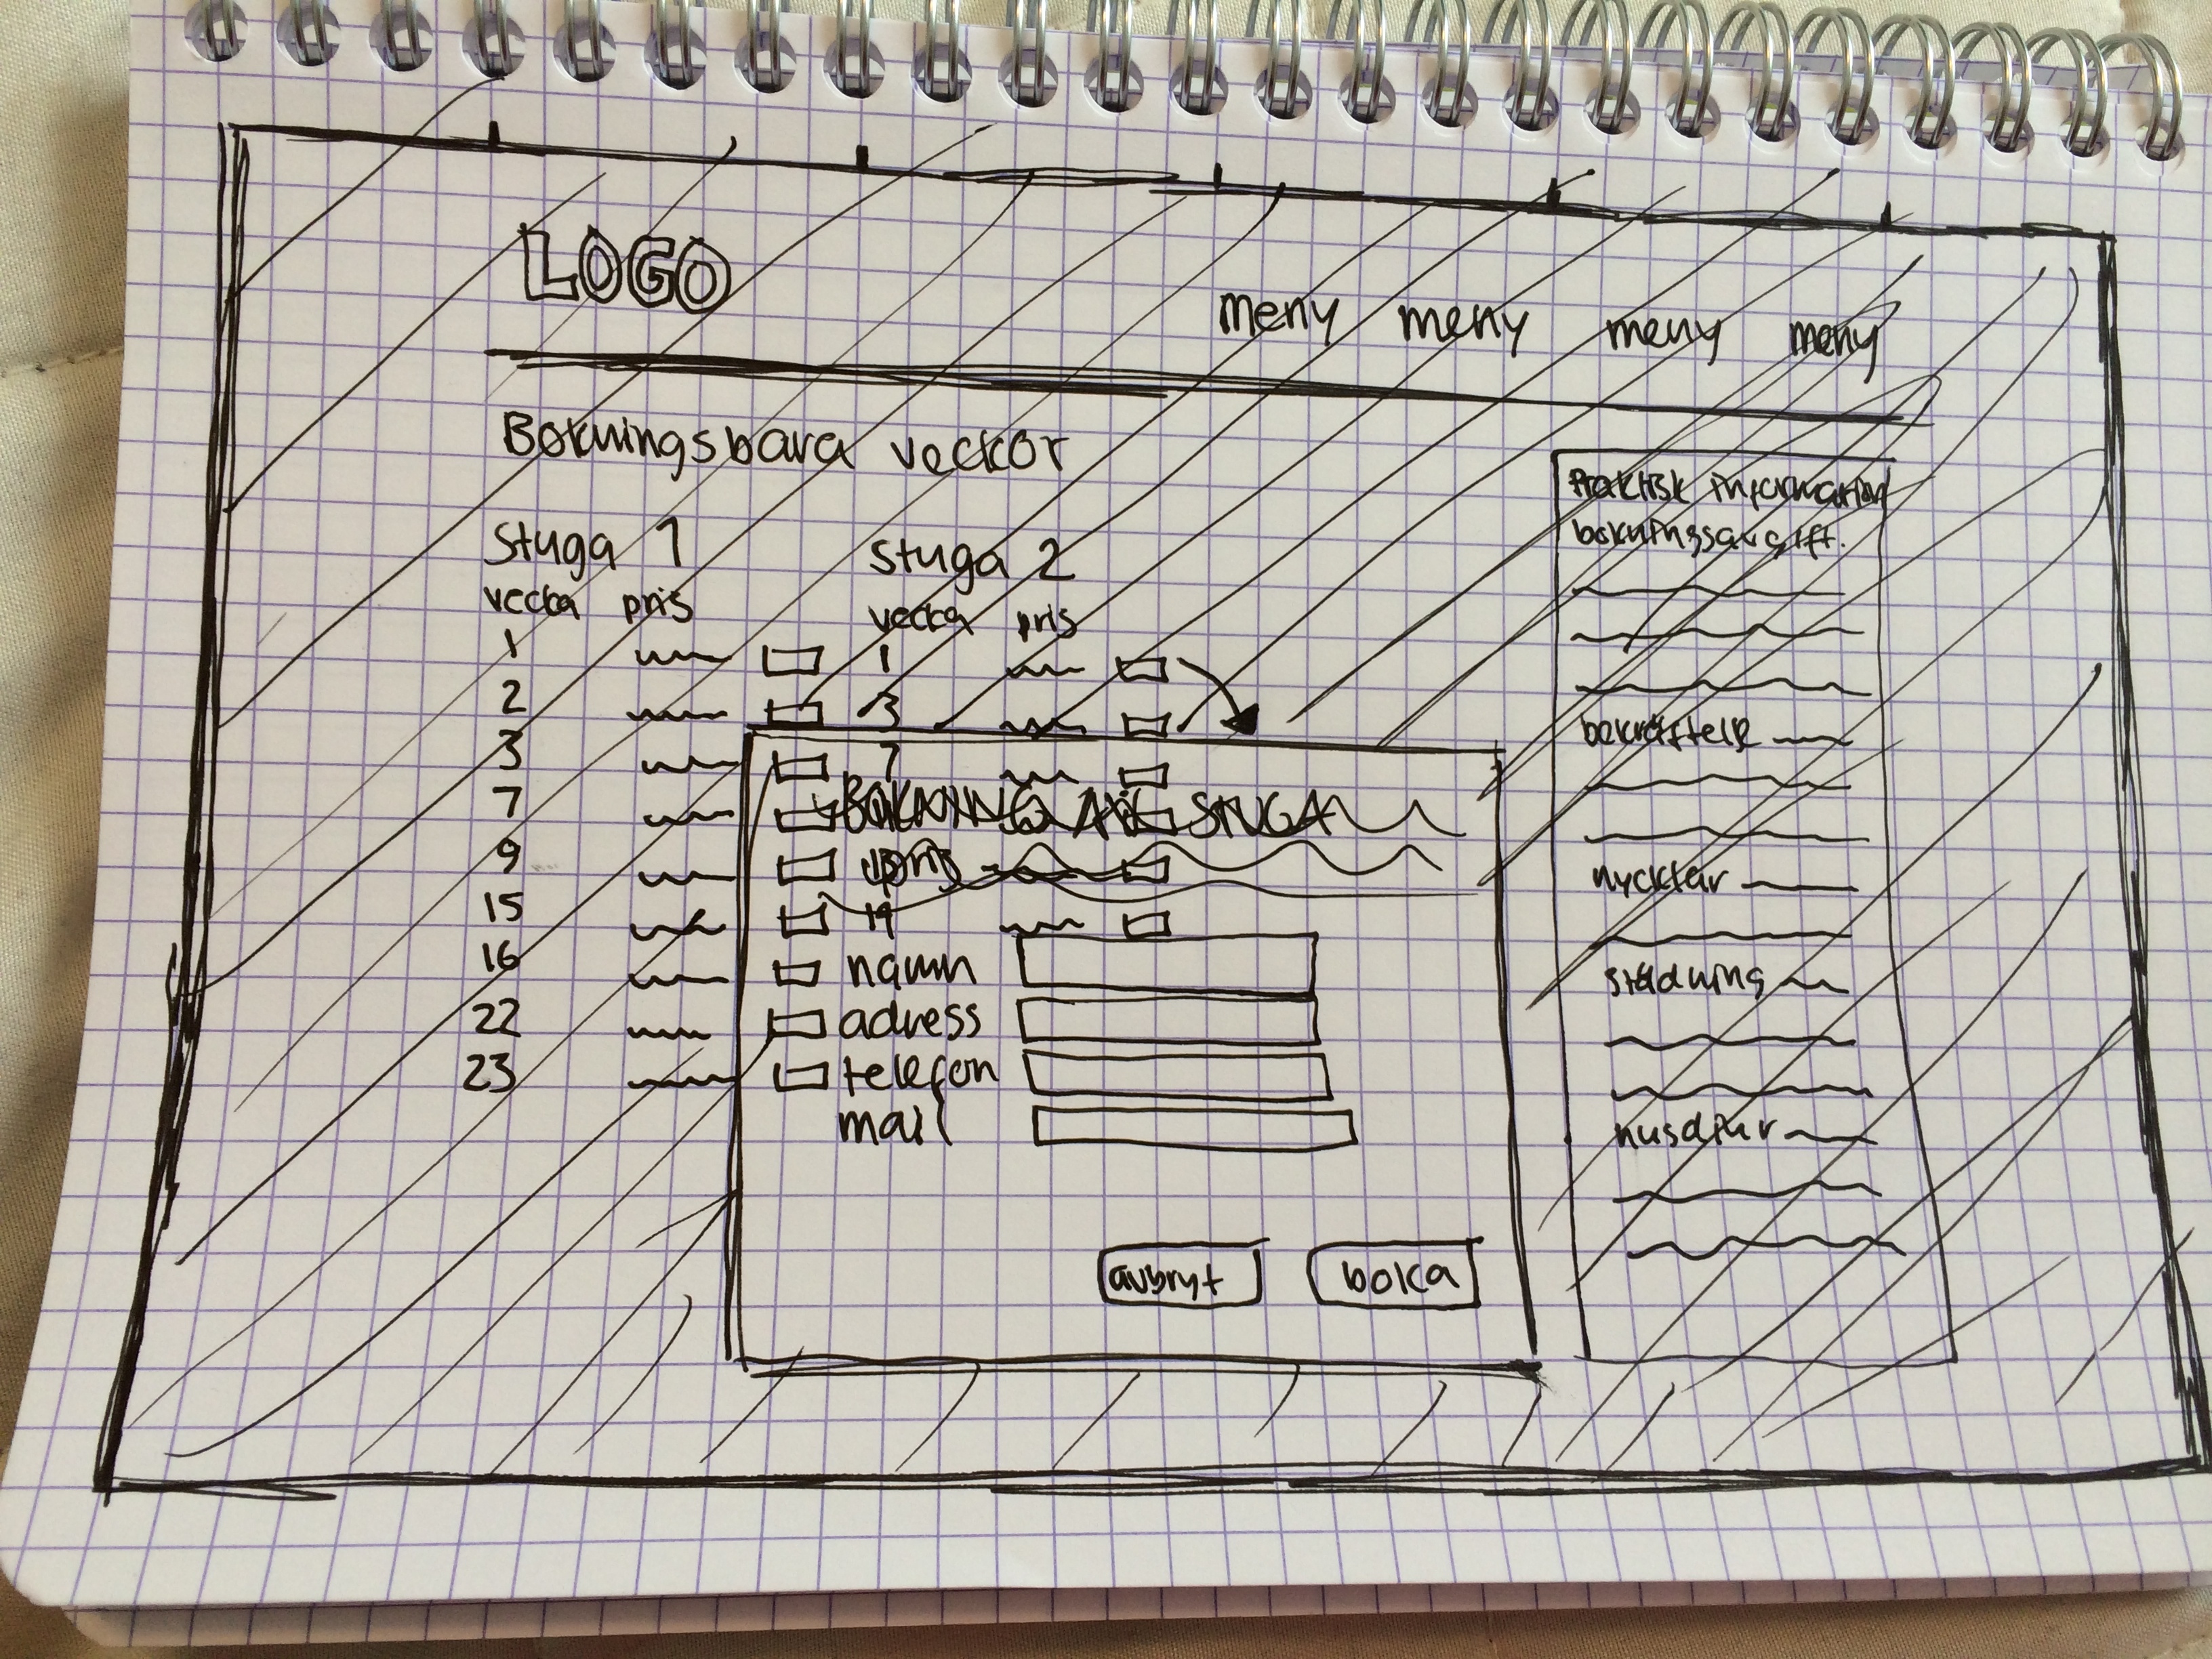 LOGO
meny meny meny meny
Bokningsbara veckor
Stuga 1
vecka pris
1
2
3
7
9
15
16
22
23
Stuga 2
vecka pris
1
3
7
19
BOKNING AV STUGA
pris
namn
adress
telefon
mail
avbryt
boka
Praktisk information
bokningsavgift.
bekräftelse
nycklar
städning
husdjur